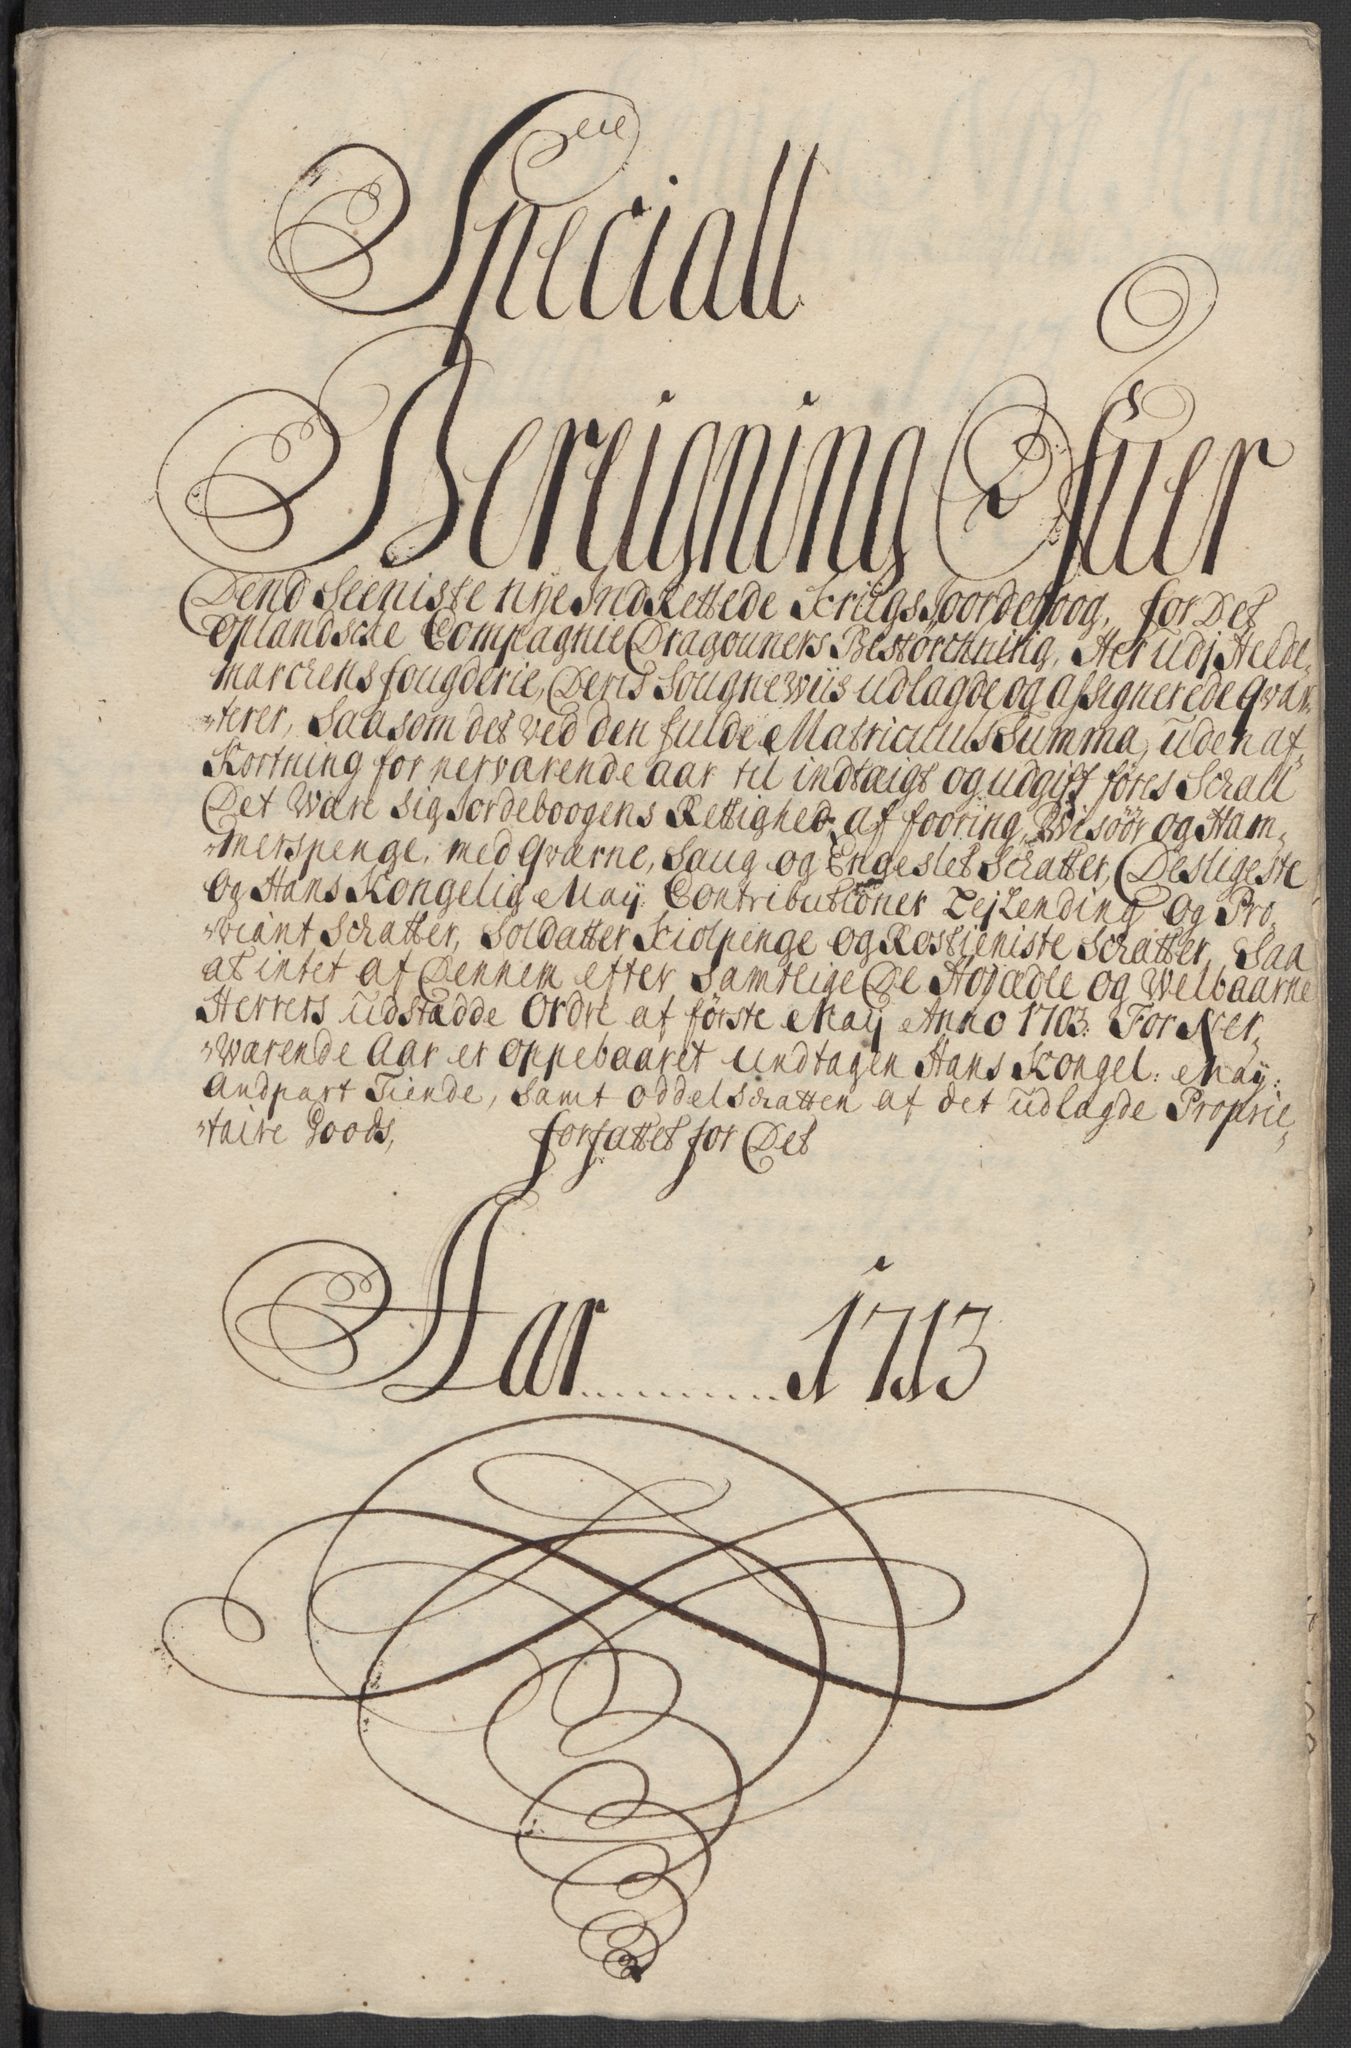 Speciall
Bereigning Ofuer
Dend Seeniste nye IndRettede Krigs Jordeboog, for Det
Oplandsche Compagnie Dragouners Besförchning, Her udj Hede,,
marchens fougderie, Deris Sougnewiis udlagde og assignerede qvar,,
,,terer, Saasom det ved den fulde Matriculs Summa, uden af,,
Kortning for nerværende aar til indtaigt og udgift föres Schall
Det være sig Jordeboogens Rettighed af fooring, Wisöör og Ham,,
,,merspenge, med Qvarne, Saug og Engeslet Schatter, Desligeste
og Hans Kongelig May: Contributioner Lejlending og Pro,,
,,viant Schatter, Soldatter Kiolpenge og Rostieniste Schatter, Saa
at intet af Dennem efter Samtlige De Höyædle og Welbaarne
Herrers udstædde Ordre af förste May Anno 1703: For Ner,,
,,wærende Aar er oppebaaret undtagen Hans Kongel: May:
Andpart Tiende, Samt Oddelschatten af det udlagde Proprie,,
,,taire Goods, forfattet for Det
Aar 1713